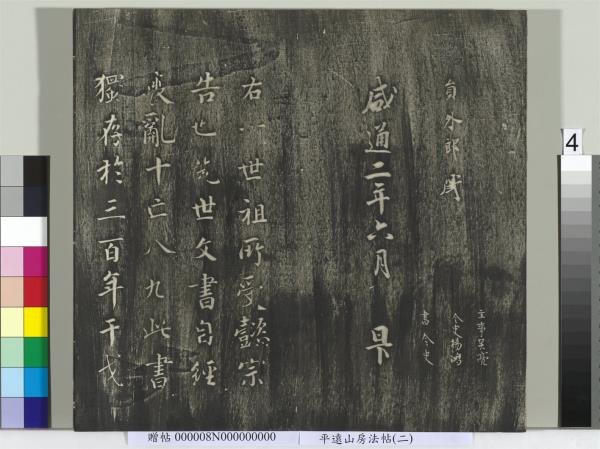 員外郎
主事吳亮
令史楊鴻
書令史
咸通二年六月 日
右八世祖所受懿宗
告也先世文書自經
喪亂十亡八九此書
獨存於三百年干戈
4
贈帖 000008N000000000 平遠山房法帖(二)